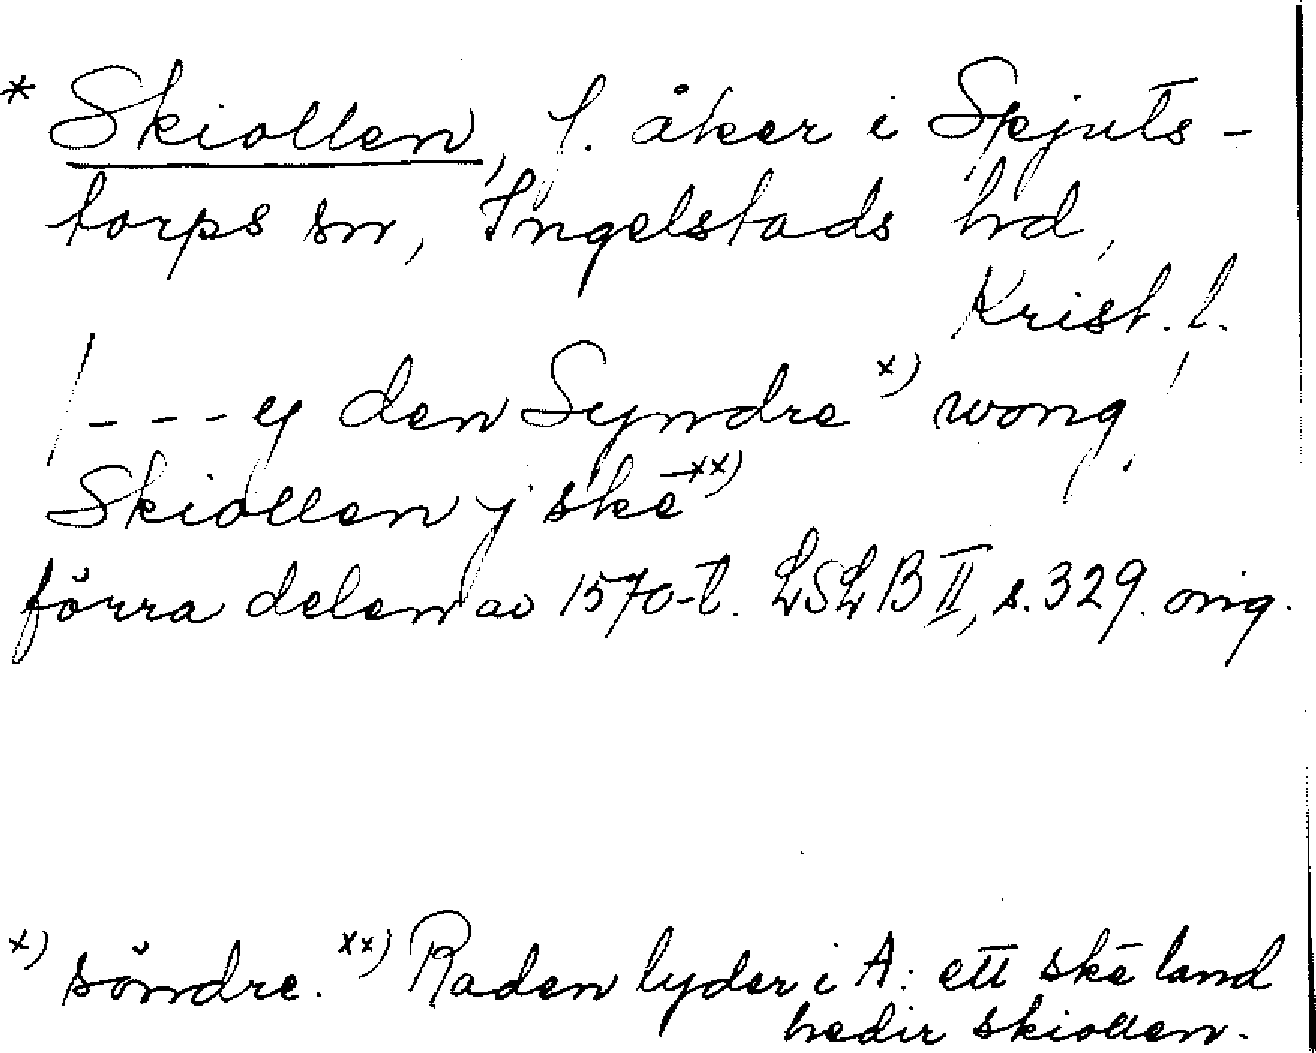 * Skiollen, f. åker i Spjuts-
torps sn, Ingelstads hd,
Krist. l.
/---ej den Syndre x) wong,
Skiollen j skē xx)
förra delen av 1570-t. LSLB II, s. 329. orig.
x) söndre. xx) Raden lyder i A: ett skē land
hedir skiollen.